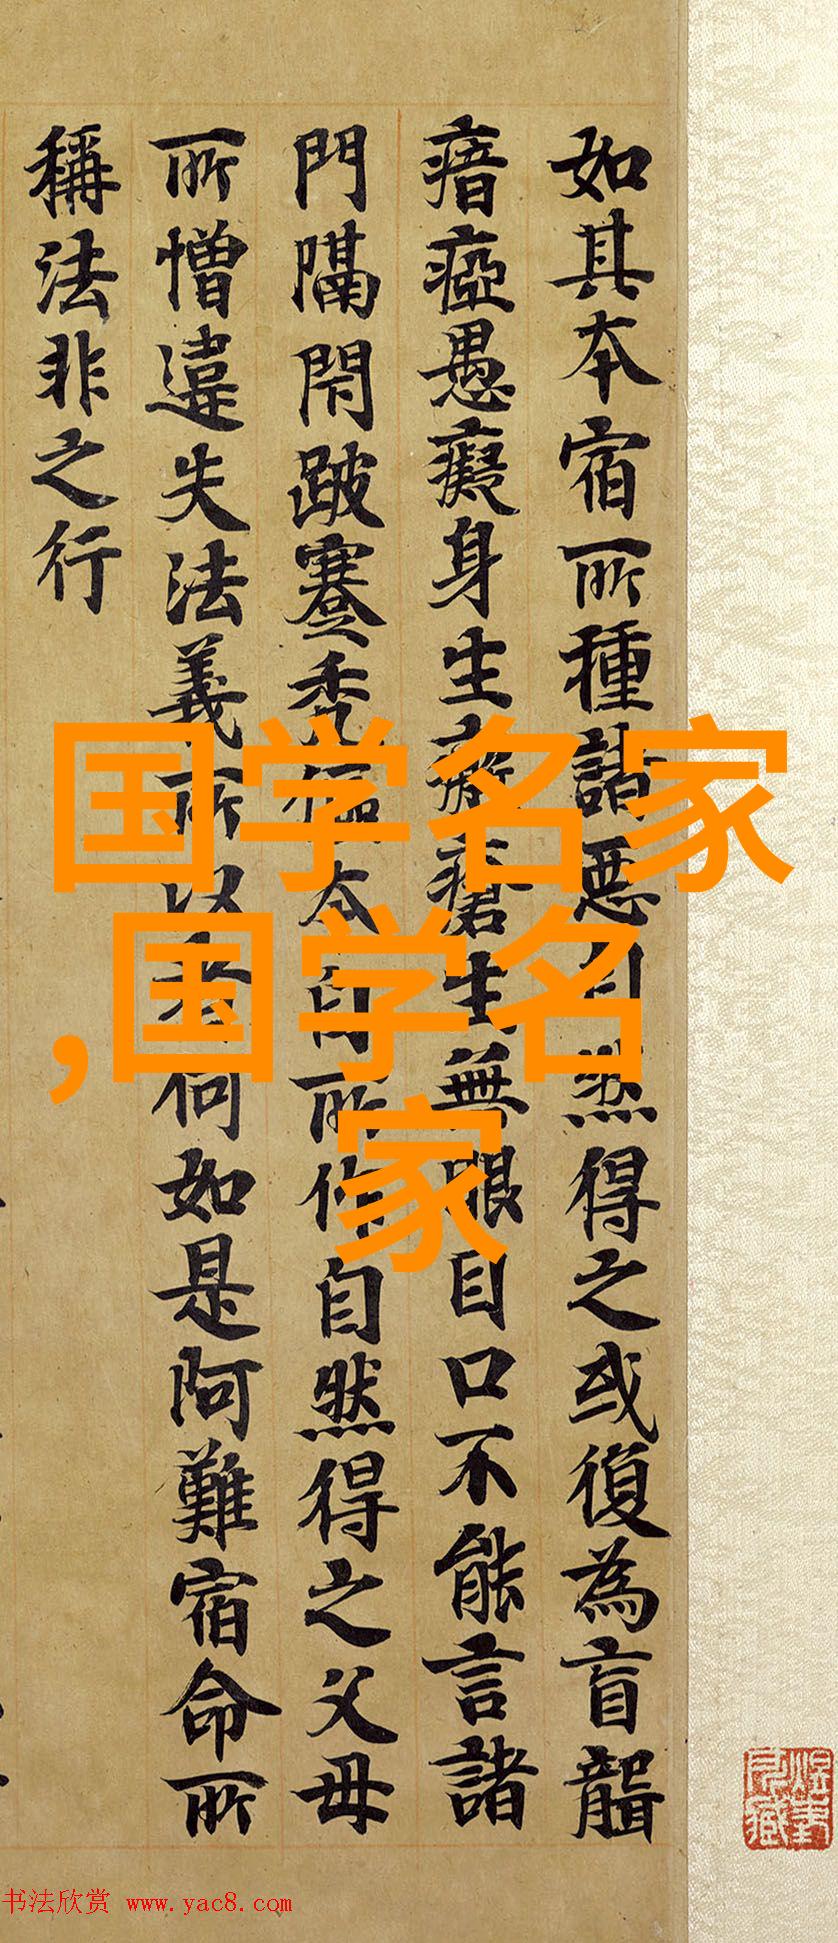 如其本宿所種諸惡自然得之或復為盲聾
瘖瘂愚癡身生瘡生無眼目口不能言諸
門隔閇跛蹇禿傴本自所作自然得之父母
所憎違失法義所以者何如是阿難宿命所
稱法非之行
国学名家
,国学名
家
书法欣赏 www.yac8.com